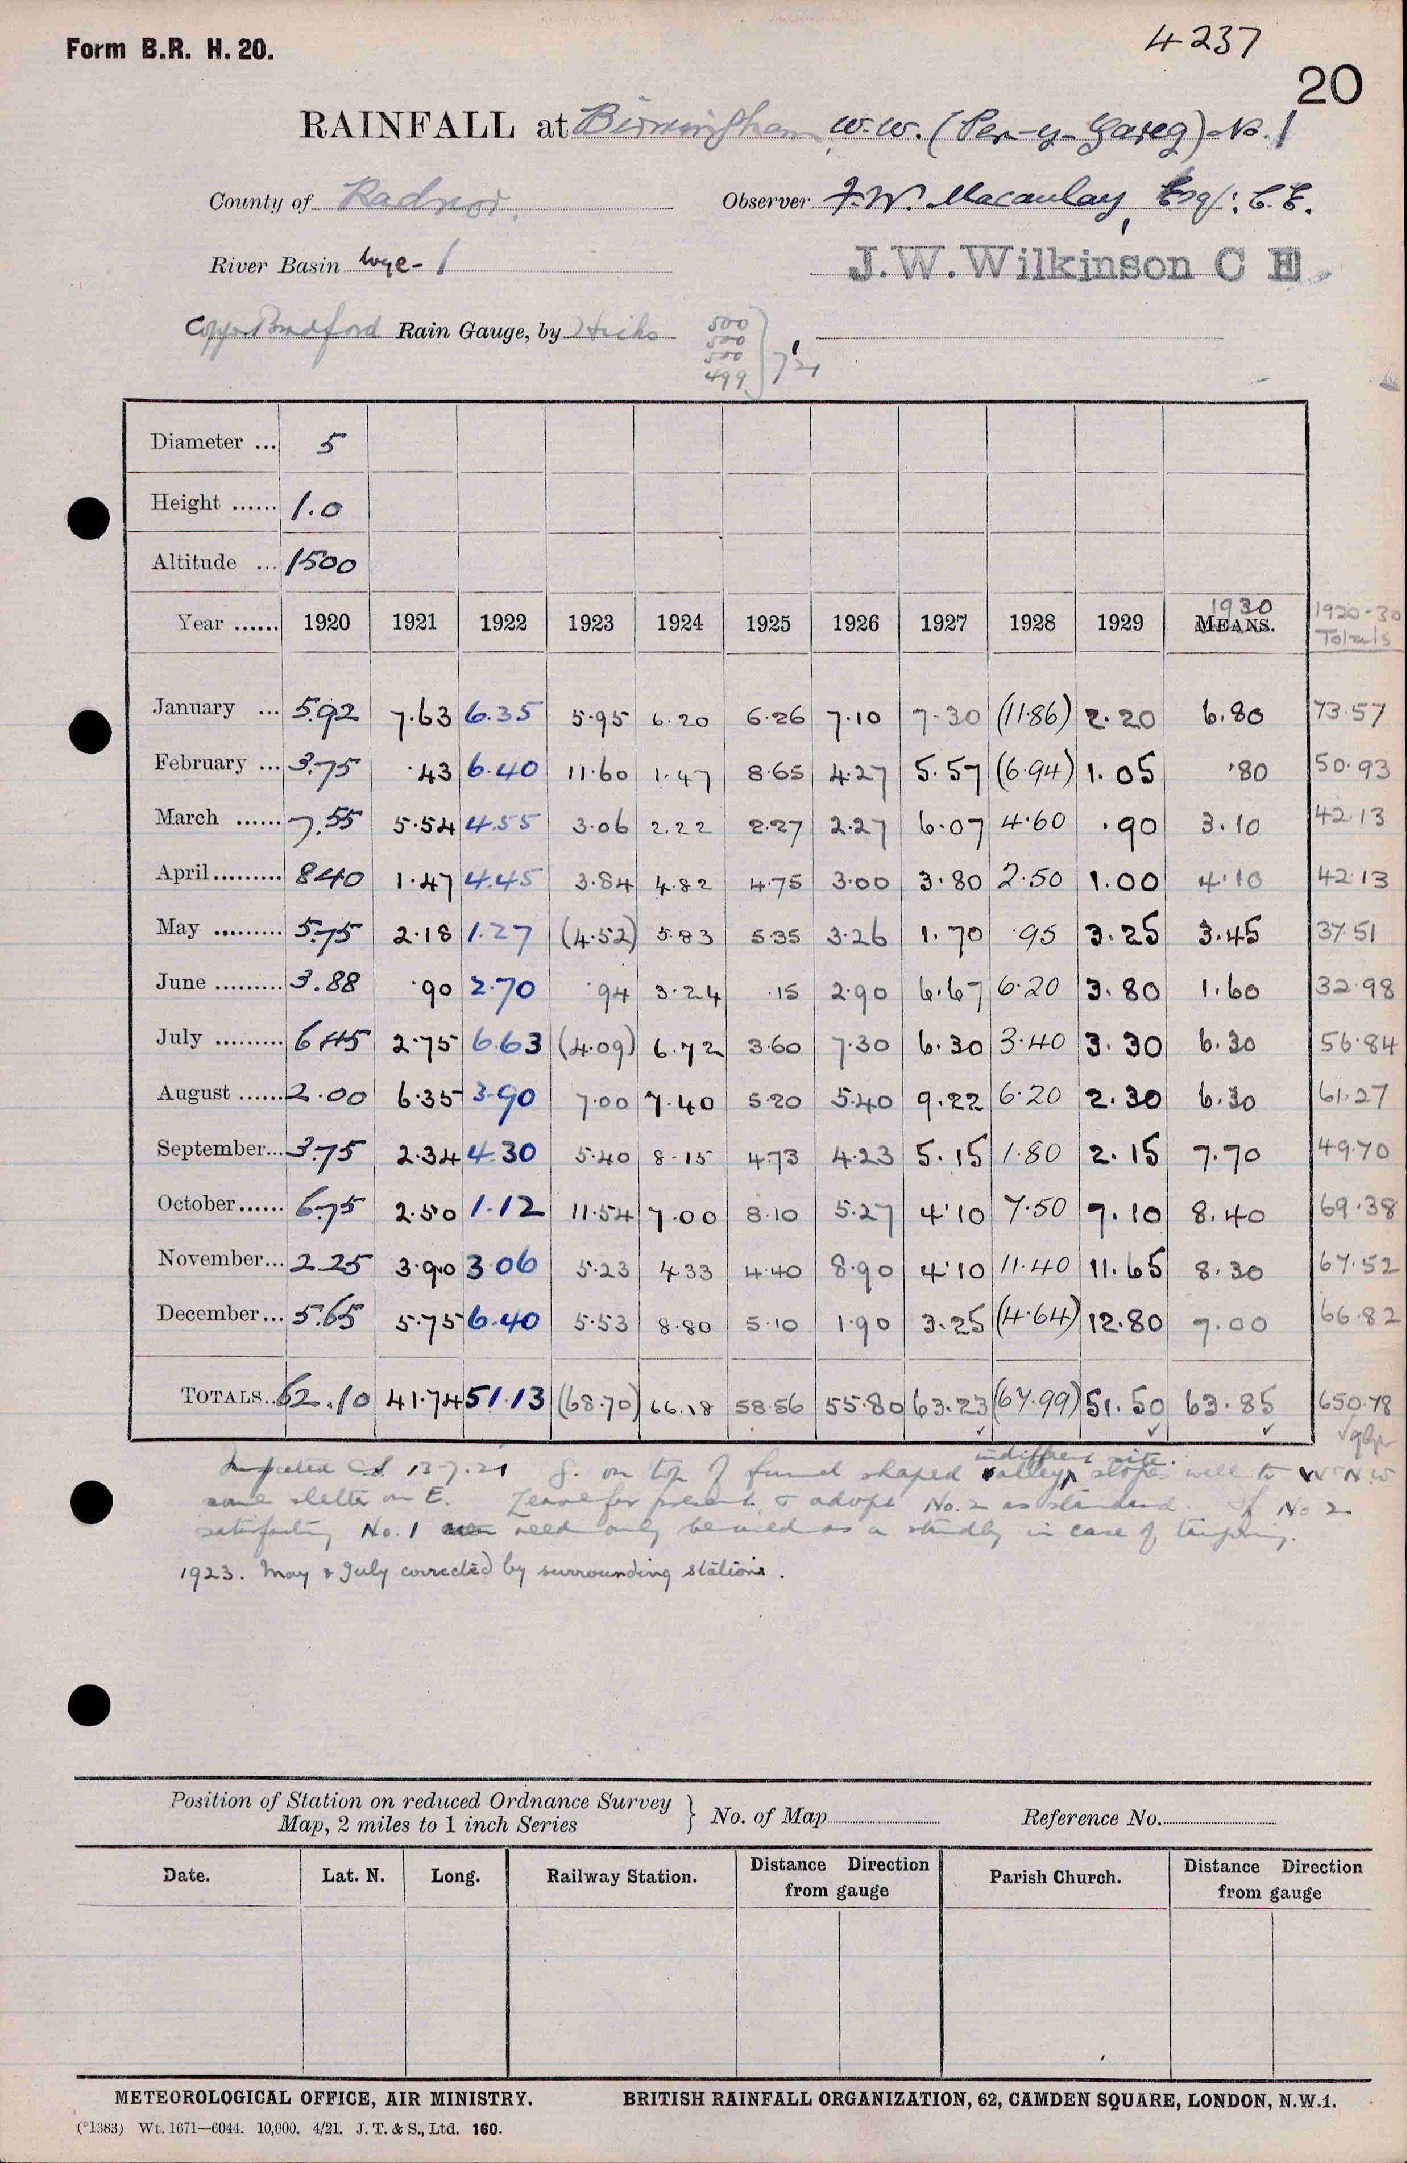 Form B.R. H. 20.
4237
20
RAINFALL at Birmingham W.W. (Pen-y-Gareg) No. 1
County of Radnor. Observer J.W. Macaulay, Esq: C.E.
River Basin Wye - 1 J. W. Wilkinson C E
Copper Bradford Rain Gauge, by Hicks
500
500
500
499
Diameter ... 5
Height ...... 1.0
Altitude ... 1500
Year ...... 1920 1921 1922 1923 1924 1925 1926 1927 1928 1929 1930 MEANS. 1920-30 Totals
January ... 5.92 7.63 6.35 5.95 6.20 6.26 7.10 7.30 (11.86) 2.20 6.80 73.57
February ... 3.75 .43 6.40 11.60 1.47 8.65 4.27 5.57 (6.94) 1.05 .80 50.93
March ...... 7.55 5.54 4.55 3.06 2.22 2.27 2.27 6.07 4.60 .90 3.10 42.13
April ......... 8.40 1.47 4.45 3.84 4.82 4.75 3.00 3.80 2.50 1.00 4.10 42.13
May ......... 5.75 2.18 1.27 (4.52) 5.83 5.35 3.26 1.70 .95 3.25 3.45 37.51
June ......... 3.88 .90 2.70 .94 3.24 .15 2.90 6.67 6.20 3.80 1.60 32.98
July ......... 6.45 2.75 6.63 (4.09) 6.72 3.60 7.30 6.30 3.40 3.30 6.30 56.84
August ...... 2.00 6.35 3.90 7.00 7.40 5.20 5.40 9.22 6.20 2.30 6.30 61.27
September... 3.75 2.34 4.30 5.40 8.15 4.73 4.23 5.15 1.80 2.15 7.70 49.70
October ...... 6.75 2.50 1.12 11.54 7.00 8.10 5.27 4.10 7.50 7.10 8.40 69.38
November... 2.25 3.90 3.06 5.23 4.33 4.40 8.90 4.10 11.40 11.65 8.30 67.52
December... 5.65 5.75 6.40 5.53 8.80 5.10 1.90 3.25 (4.64) 12.80 7.00 66.82
TOTALS.. 62.10 41.74 51.13 (68.70) 66.18 58.56 55.80 63.23 (67.99) 51.50 63.85 650.78
indifferent site.
Inspected C.S. 13-7.21 G. on top of funnel shaped valley, slopes well to W & NW
some shelter on E. Leave for present & adopt No. 2 as standard. If No 2
satisfactory No. 1 need only be used as a standby in case of
1923. May & July corrected by surrounding stations.
Position of Station on reduced Ordnance Survey
Map, 2 miles to 1 inch Series } No. of Map Reference No.
Date. Lat. N. Long. Railway Station. Distance Direction from gauge Parish Church. Distance Direction from gauge
METEOROLOGICAL OFFICE, AIR MINISTRY. BRITISH RAINFALL ORGANIZATION, 62, CAMDEN SQUARE, LONDON, N.W.1.
(*1383) Wt. 1671—6044. 10,000. 4/21. J. T. & S., Ltd. 160.